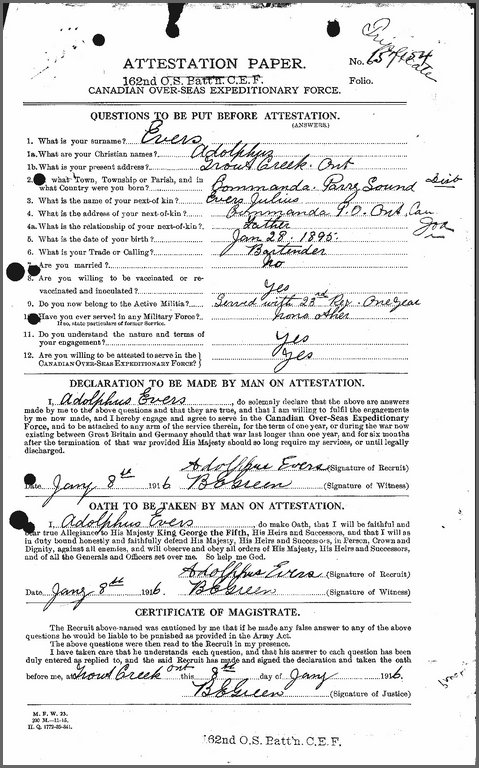 Private
No.
ATTESTATION PAPER.
162nd O.S. Batt'n. C.E.F.
Folio.
CANADIAN OVER-SEAS EXPEDITIONARY FORCE.
QUESTIONS TO BE PUT BEFORE ATTESTATION.
(ANSWERS.)
1. What is your surname? Evers
1a. What are your Christian names? Adolphus
1b. What is your present address? Trout Creek. Ont
2. what Town, Township or Parish, and in
what Country were you born? Commanda. Parry Sound Dist
3. What is the name of your next-of-kin? Evers Julius
4. What is the address of your next-of-kin? Commanda P.O. Ont. Can
4a. What is the relationship of your next-of-kin? Father
5. What is the date of your birth? Jan 28. 1895.
6. What is your Trade or Calling? Bartender
7. Are you married? no
8. Are you willing to be vaccinated or re-
vaccinated and inoculated? Yes
9. Do you now belong to the Active Militia? Served with 23rd Reg. One Year
10. Have you ever served in any Military Force? None other
If so, state particulars of former Service.
11. Do you understand the nature and terms of
your engagement? Yes
12. Are you willing to be attested to serve in the
CANADIAN OVER-SEAS EXPEDITIONARY FORCE? Yes
DECLARATION TO BE MADE BY MAN ON ATTESTATION.
I, Adolphus Evers, do solemnly declare that the above are answers
made by me to the above questions and that they are true, and that I am willing to fulfil the engagements
by me now made, and I hereby engage and agree to serve in the Canadian Over-Seas Expeditionary
Force, and to be attached to any arm of the service therein, for the term of one year, or during the war now
existing between Great Britain and Germany should that war last longer than one year, and for six months
after the termination of that war provided His Majesty should so long require my services, or until legally
discharged.
Adolphus Evers (Signature of Recruit)
Date Jany 8th 1916 B E Green (Signature of Witness)
OATH TO BE TAKEN BY MAN ON ATTESTATION.
I, Adolphus Evers, do make Oath, that I will be faithful and
bear true Allegiance to His Majesty King George the Fifth, His Heirs and Successors, and that I will as
in duty bound honestly and faithfully defend His Majesty, His Heirs and Successors, in Person, Crown and
Dignity, against all enemies, and will observe and obey all orders of His Majesty, His Heirs and Successors,
and of all the Generals and Officers set over me. So help me God.
Adolphus Evers (Signature of Recruit)
Date Jany 8th 1916. B E Green (Signature of Witness)
CERTIFICATE OF MAGISTRATE.
The Recruit above-named was cautioned by me that if he made any false answer to any of the above
questions he would be liable to be punished as provided in the Army Act.
The above questions were then read to the Recruit in my presence.
I have taken care that he understands each question, and that his answer to each question has been
duly entered as replied to, and the said Recruit has made and signed the declaration and taken the oath
before me, at Trout Creek Ont this 8th day of Jany 1916
B E Green (Signature of Justice)
M. F. W. 23.
200 M.—11-15.
H. Q. 1772-39-841.
162nd O.S. Batt'n. C.E.F.